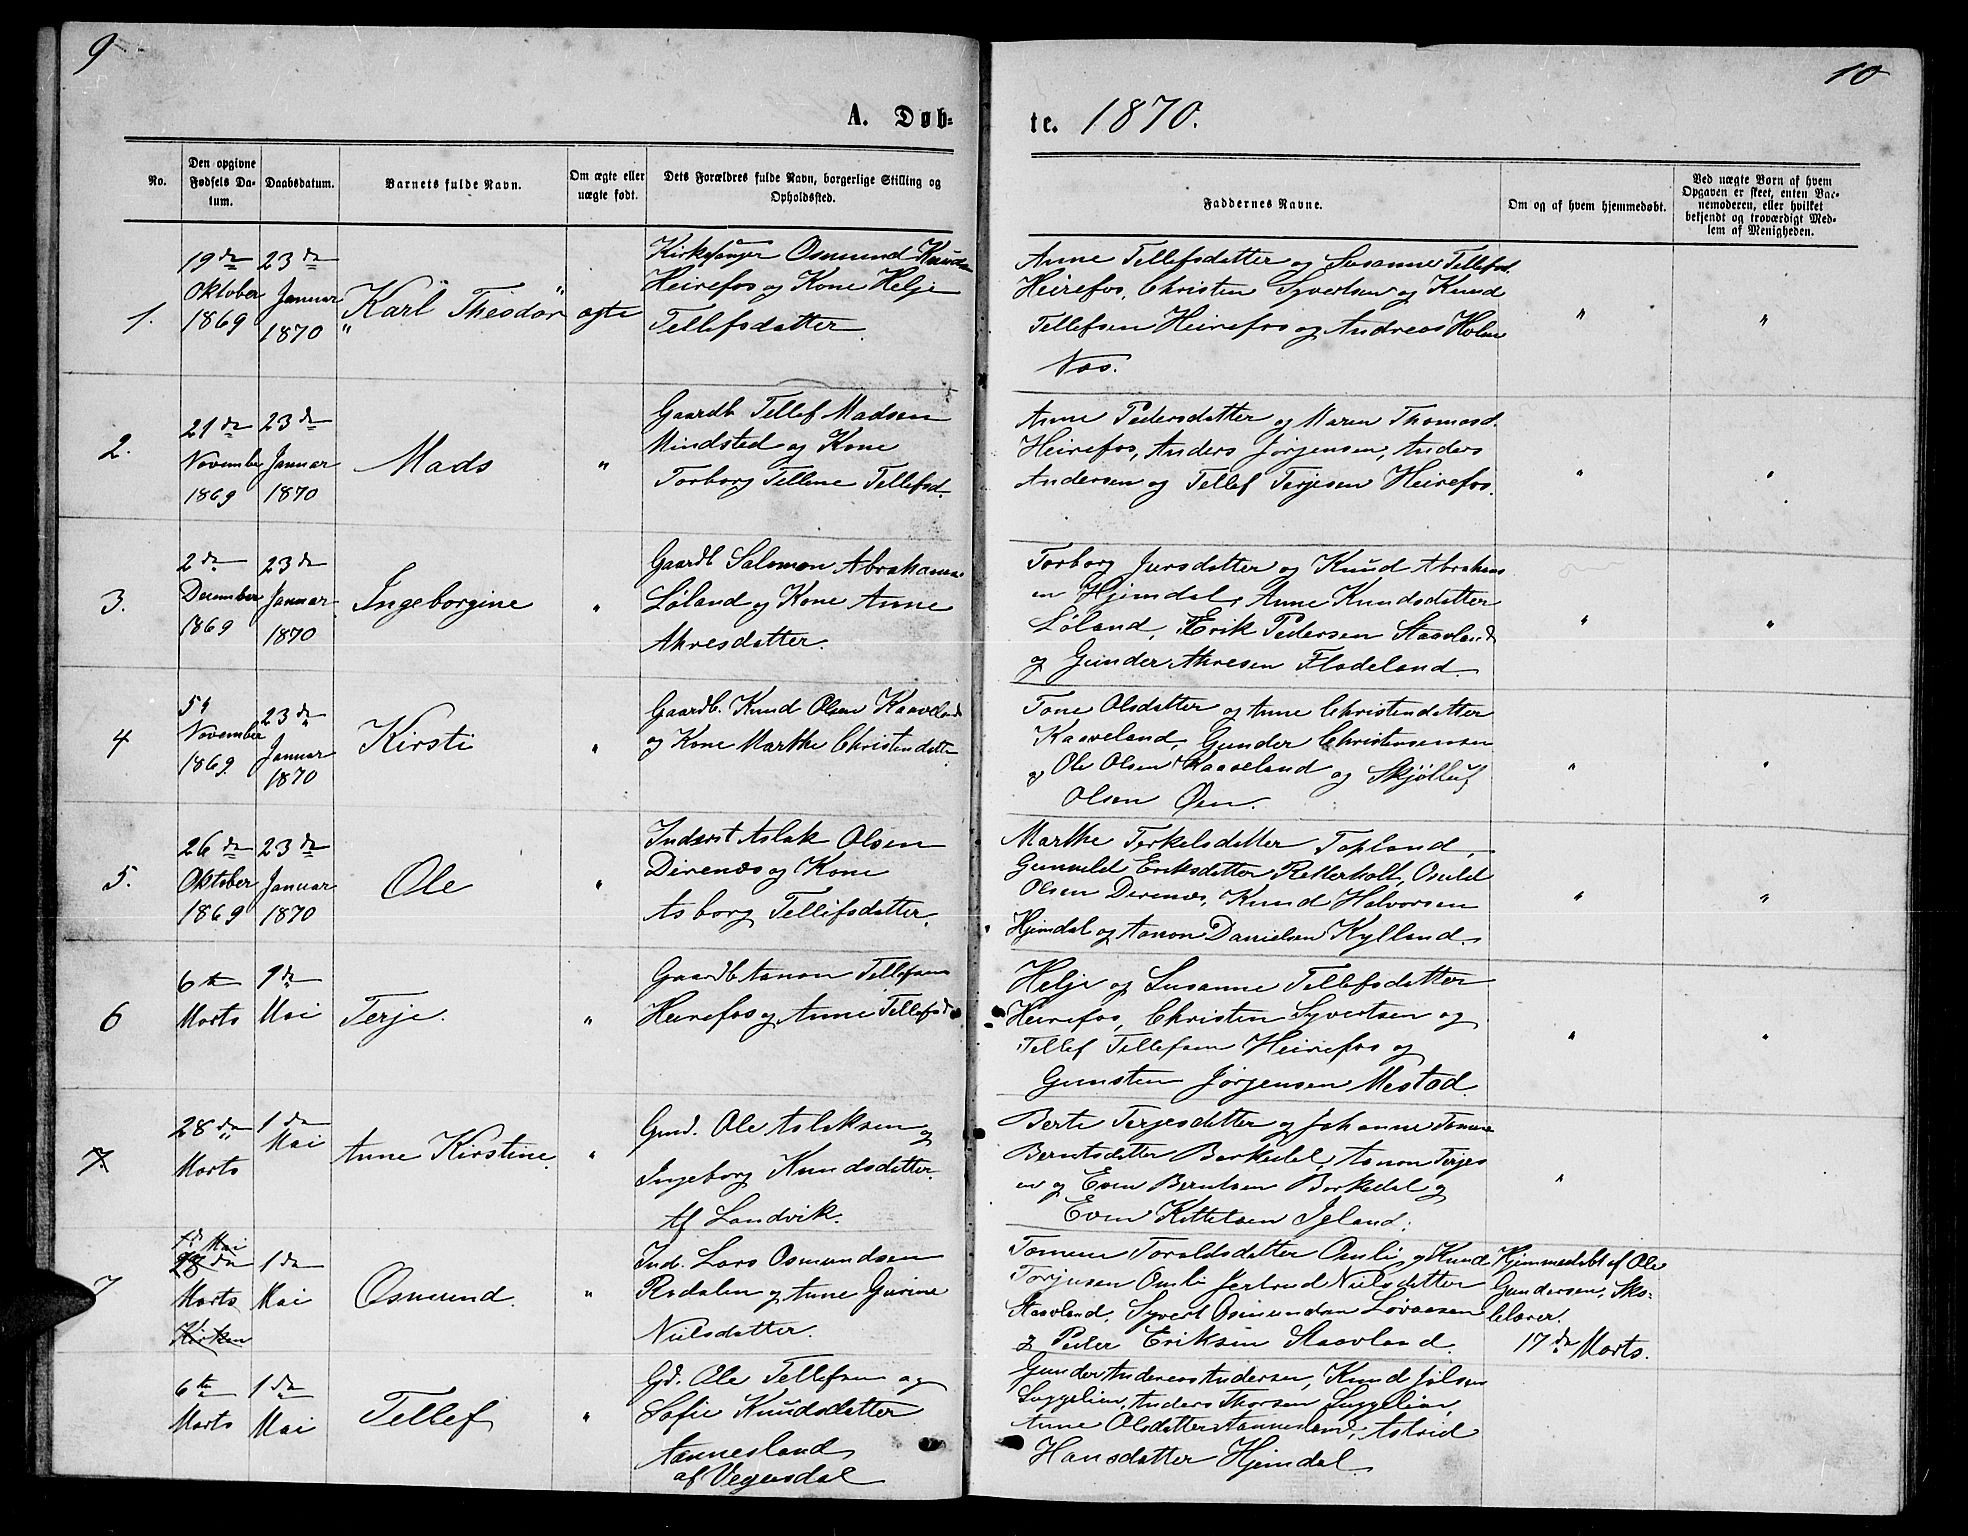 9
10
A. Døb-
te. 1870.
No.
Den opgivne
Fødsels Da-
tum.
Daabsdatum.
Barnets fulde Navn.
Om ægte eller
uægte født.
Dets Forældres fulde Navn, borgerlige Stilling og
Opholdssted.
Faddernes Navne.
Om og af hvem hjemmedøbt.
Ved uægte Børn af hvem
Opgaven er skeet, enten Bar-
nemoderen, eller hvilket
bekjendt og troværdigt Med-
lem af Menigheden.
1.
19de
Oktober
1869
23de
Januar
1870
Karl Theodor
ægte
Kirkesanger Osmund Knudsen
Heirefos og Kone Helje
Tellefsdatter.
Anne Tellefsdatter og Susanne Tellefsd.
Heirefos, Christen Syvertsen og Knud
Tellefsen Heirefos og Andreas Holm
Næs.
"
"
2.
21de
November
1869
23de
Januar
1870
Mads
"
Gaardb. Tellef Madsen
Mindsted og Kone
Torborg Telline Tellefsd.
Anne Pedersdatter og Maren Thomasd.
Heirefos, Anders Jørgensen, Anders
Andersen og Tellef Terjesen Heirefos.
"
"
3.
2de
December
1869
23de
Januar
1870
Ingeborgine
"
Gaardb. Salomon Abrahamsen
Løland og Kone Anne
Akresdatter.
Torborg Jursdatter og Knud Abrahams
en Hjemdal, Anne Knudsdatter
Løland, Erik Pedersen Staavland
og Gunder Akresen Flodeland.
"
"
4
5te
November
1869
23de
Januar
1870
Kirsti
"
Gaardb. Knud Olsen Kaaveland
og Kone Marthe Christendatter
Tone Olsdatter og Anne Christendatter
Kaaveland, Gunder Christensensen
og Ole Olsen Kaaveland og Skjølluf
Olsen Øen.
"
"
5.
26de
Oktober
1869
23de
Januar
1870
Ole
"
Inderst Aslak Olsen
Direnæs og Kone
Asborg Tellefsdatter.
Marthe Terkelsdatter Topland,
Gunnild Eriksdatter Retterholt, Osuld
Olsen Derenæs, Knud Halvorsen
Hjemdal og Aanon Danielsen Kylland.
"
"
6
6te
Marts
1de
Mai
Terje.
"
Gaardb. Aanon Tellefsen
Heirefos og Anne Tellefsd.
Helje og Susanne Tellefsdatter
Heirefos, Christen Syvertsen og
Tellef Tellefsen Heirefos og
Gunsten Jørgensen Mestad.
"
"
7.
28de
Marts
1de
Mai
Anne Kirstine.
"
Gmd. Ole Aslaksen og
Ingeborg Knudsdatter.
Af Landvik.
Berte Terjesdatter og Johanne Tomine
Berntsdatter Berkedal, Aanon Terjes
en og Even Berntsen Borkedal og
Even Kittelsen Igland.
"
7
1ste Mai
Marts
1de
Mai
Osmund.
"
Ind. Lars Osmundsen
Rodalen og Anne Gurine
Nielsdatter.
Tomine Toraldsdatter Omli og Knud
Torjusen Omli Jertrud Nielsdatter
Staavland, Syvert Osmundsen Løvaasen
og Peder Eriksen Staavland.
Hjemmedøbt af Ole
Gundersen, Sko-
lelærer.
17de Marts.
6te
Marts
1de
Mai
Tellef
"
Gd. Ole Tellefsen og
Sofie Knudsdatter
Aannesland
af Vegusdal
Gunder Andreas Andersen, Knud Jølsen
Luggelien, Anders Thorsen Luggelien,
Anne Olsdatter Aannesland, Astrid
Hansdatter Hjemdal.